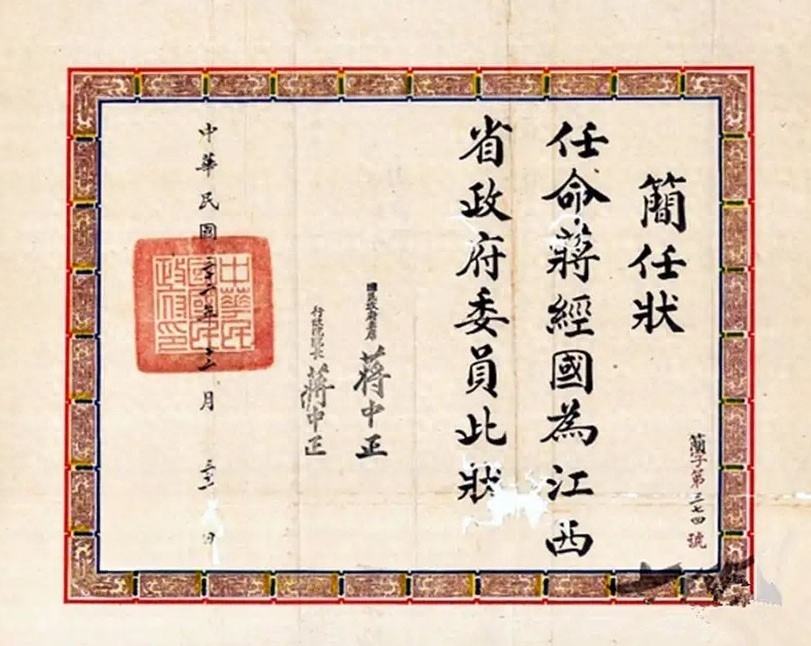 簡字第三七四號
簡任狀
任命蔣經國為江西
省政府委員此狀
國民政府主席 蔣中正
行政院院長 蔣中正
中華民國三十二年十二月 日
中華民國國民政府印